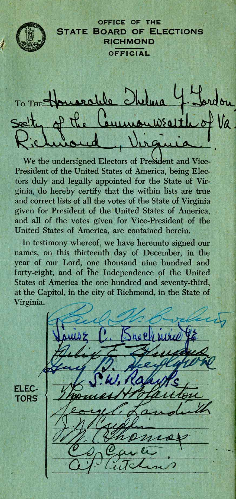 OFFICE OF THE
STATE BOARD OF ELECTIONS
RICHMOND
OFFICIAL
TO THE Honorable Thelma Y. Gordon
sec'ty of the Commonwealth of Va.
Richmond, Virginia
We the undersigned Electors of President and Vice-
President of the United States of America, being Elec-
tors duly and legally appointed for the State of Vir-
ginia, do hereby certify that the within lists are true
and correct lists of all the votes of the State of Virginia
given for President of the United States of America,
and all of the votes given for Vice-President of the
United States of America, are contained herein.
In testimony whereof, we have hereunto signed our
names, on this thirteenth day of December, in the
year of our Lord, one thousand nine hundred and
forty-eight, and of the Independence of the United
States of America the one hundred and seventy-third,
at the Capitol, in the city of Richmond, in the State of
Virginia.
ELEC-
TORS
S. W.
Thomas H.
George C.
Thomas